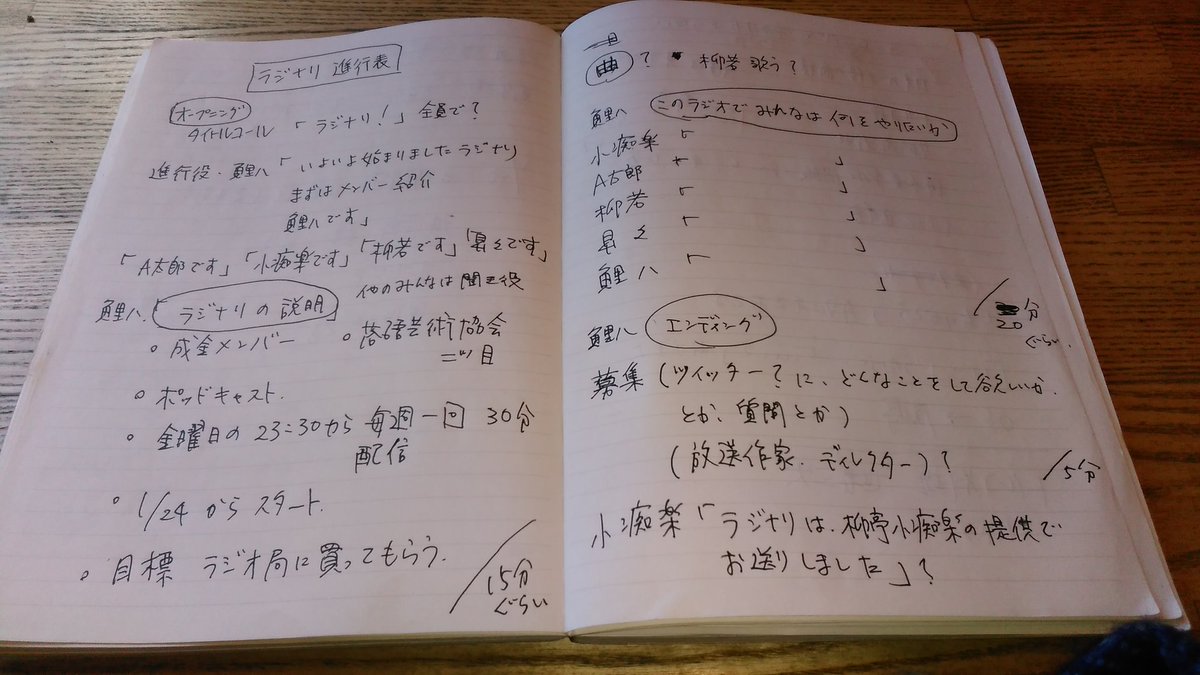 ラジナリ 進行表
オープニング
タイトルコール 「ラジナリ!」 全員で?
進行役・鯉八 「いよいよ始まりました ラジナリ
まずはメンバー紹介
鯉八です」
「A太郎です」「小痴楽です」「柳若です」「昇々です」
他のみんなは聞き役
鯉八「ラジナリの説明」
○ 成金メンバー ○ 落語芸術協会
二ツ目
○ ポッドキャスト.
○ 金曜日の 23:30から 毎週一回 30分
配信
○ 1/24 から スタート.
○ 目標 ラジオ局に買ってもらう.
/15分
ぐらい
曲 ? 柳若 歌う?
鯉八 このラジオで みんなは 何を やりたいか
小痴楽 「 」
A太郎 「 」
柳若 「 」
昇々 「 」
鯉八 「 」
/20分
ぐらい.
鯉八 エンディング
募集 (ツイッター?に、どんなことをして欲しいか.
とか、質問とか)
(放送作家.ディレクター)?
/5分
小痴楽「ラジナリは、柳亭小痴楽の提供で
お送りしました」?